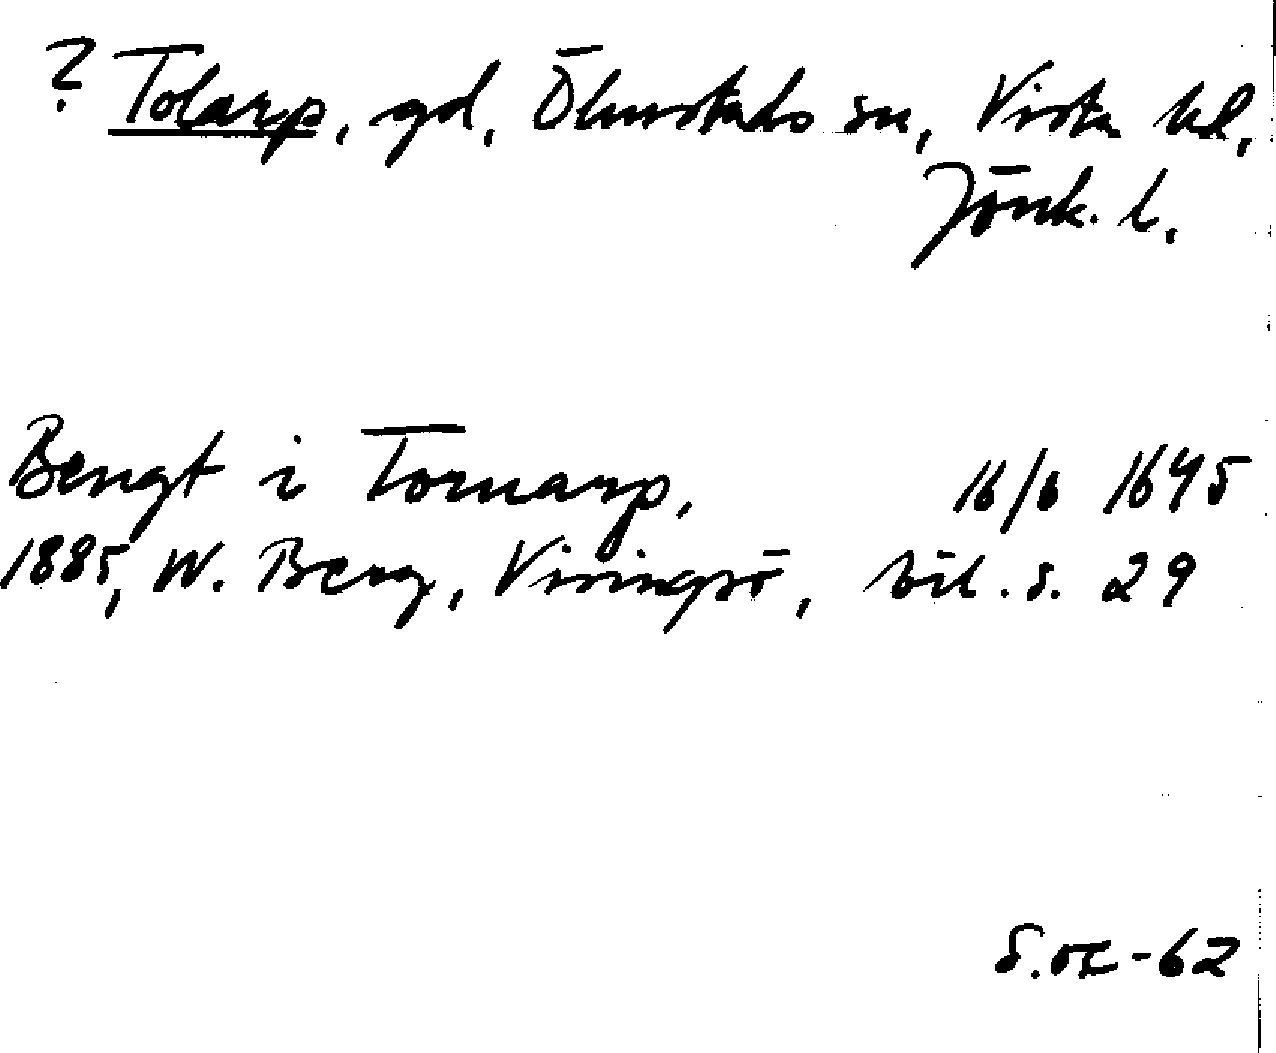 ? Tolarp, gd, Ölmstads sn, Vista hd,
Jönk. l.
Bengt i Tornarp, 16/6 1645
1885, W. Berg, Visingsö, bil. s. 29
S.oe-62